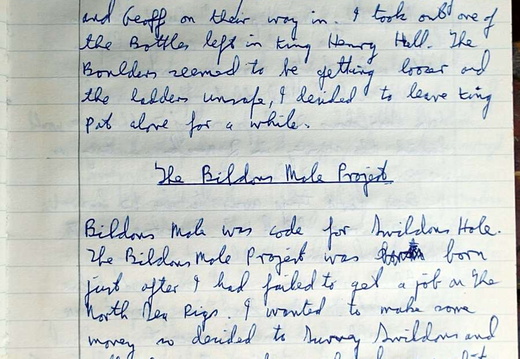 and Geoff on their way in. I took out one of
the Bottles left in King Henry Hall. The
Boulders seemed to be getting looser and
the ladders unsafe, I decided to leave King
Pot alone for a while.
The Bildons Mole Project
Bildons Mole was code for Swildons Hole.
The Bildons Mole Project was born
just after I had failed to get a job on the
North Sea Rigs. I wanted to make some
money so decided to Survey Swildons and